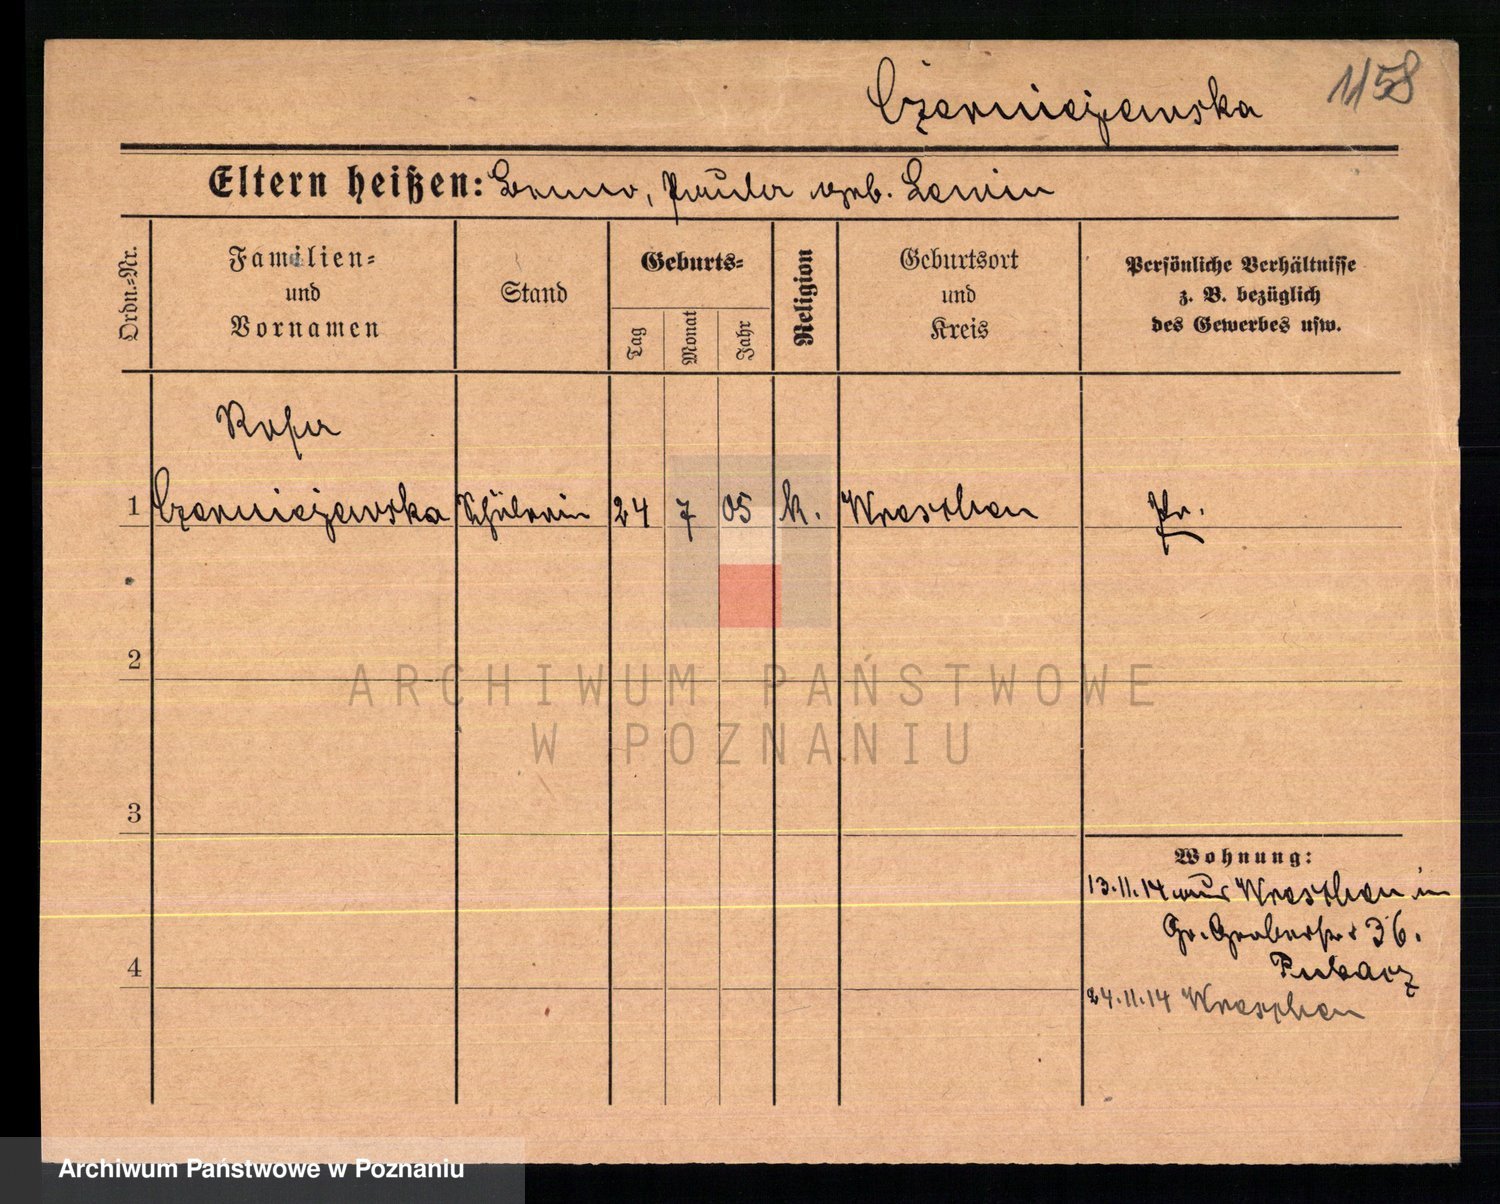 Czerniejewska 1158
Eltern heißen: Bruno, Paula geb. Lewin
Ordn.-Nr.
Familien-
und
Vornamen
Stand
Geburts-
Tag
Monat
Jahr
Religion
Geburtsort
und
Kreis
Persönliche Verhältnisse
z. B. bezüglich
des Gewerbes usw.
Rosa
1 Czerniejewska Schülerin 24 7 05 k. Wreschen Pr.
2
ARCHIWUM PAŃSTWOWE
W POZNANIU
3
Wohnung:
13.11.14 aus Wreschen in
Gr. Gerberstr. 36.
4
24.11.14 Wreschen
Archiwum Państwowe w Poznaniu